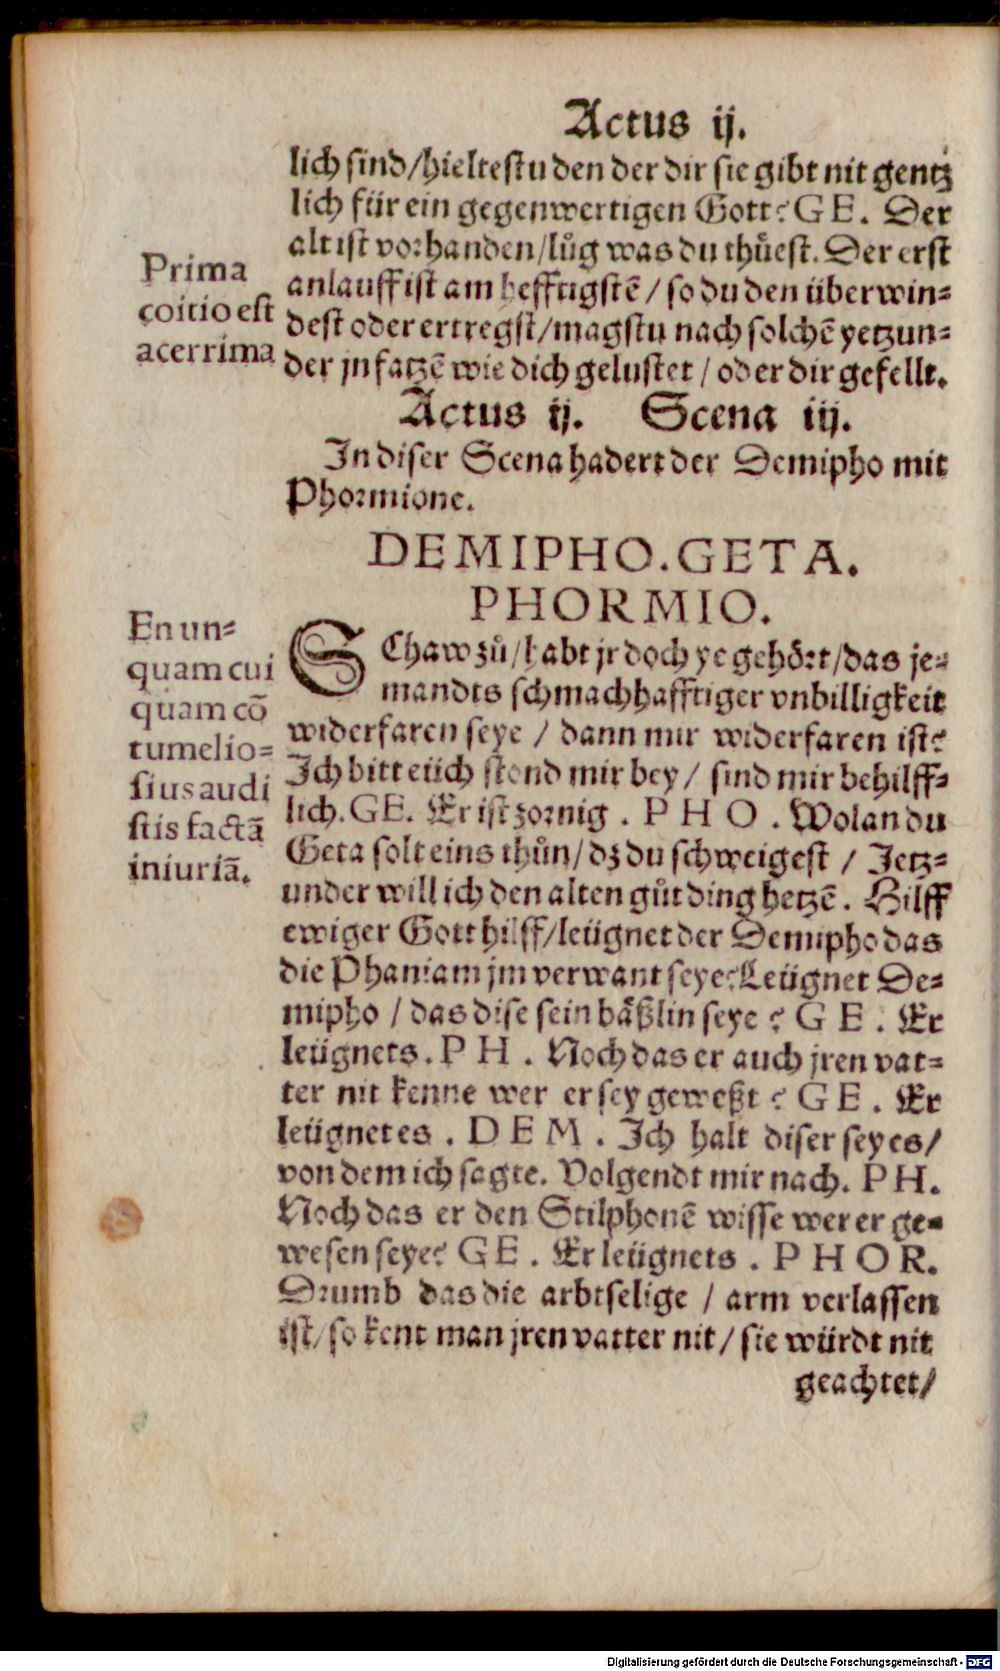 Actus ij.
lich sind/hieltestu den der dir sie gibt nit gentz
lich für ein gegenwertigen Gott? GE. Der
alt ist vorhanden/lůg was du thůest. Der erst
anlauff ist am hefftigstē / so du den überwin=
dest oder ertregst/magstu nach solchē yetzun=
der jn fatzē wie dich gelustet / oder dir gefellt.
Prima
coitio est
acerrima
Actus ij. Scena iij.
In diser Scena hadert der Demipho mit
Phormione.
DEMIPHO. GETA.
PHORMIO.
SChaw zů/habt jr doch ye gehört/das je=
mandts schmachhafftiger vnbilligkeit
widerfaren seye / dann mir widerfaren ist?
Ich bitt eüch stond mir bey/ sind mir behilff=
lich. GE. Er ist zornig. PHO. Wolan du
Geta solt eins thůn/dz du schweigest / Jetz=
under will ich den alten gůt ding hetzē. Hilff
ewiger Gott hilff/leügnet der Demipho das
die Phaniam jm verwant seye? Leügnet De=
mipho / das dise sein bäßlin seye? GE. Er
leügnets. PH. Noch das er auch jren vat=
ter nit kenne wer er sey geweßt? GE. Er
leügnet es. DEM. Ich halt diser sey es/
von dem ich sagte. Volgendt mir nach. PH.
Noch das er den Stilphonē wisse wer er ge=
wesen seye? GE. Er leügnets. PHOR.
Drumb das die arbtselige / arm verlassen
ist/so kent man jren vatter nit/ sie würdt nit
geachtet/
En un=
quam cui
quam cō
tumelio=
sius audi
stis factā
iniuriā.
Digitalisierung gefördert durch die Deutsche Forschungsgemeinschaft - DFG